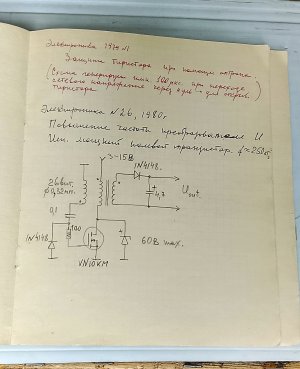 Электроника 1979 №1
Защита тиристора при помощи оптрона.
(Схема генерирует имп. 100 мкс при переходе
сетевого напряжения через нуль → для открыв.
тиристора)
Электроника №26, 1980г.
Повышение частоты преобразователя U
Исп. мощный полевой транзистор. f≈250кГц
3-15В
1N4148.
26 вит.
ф 0,32мм.
Uout.
4,7
0,1
100
1N4148
60В max.
VN10KM